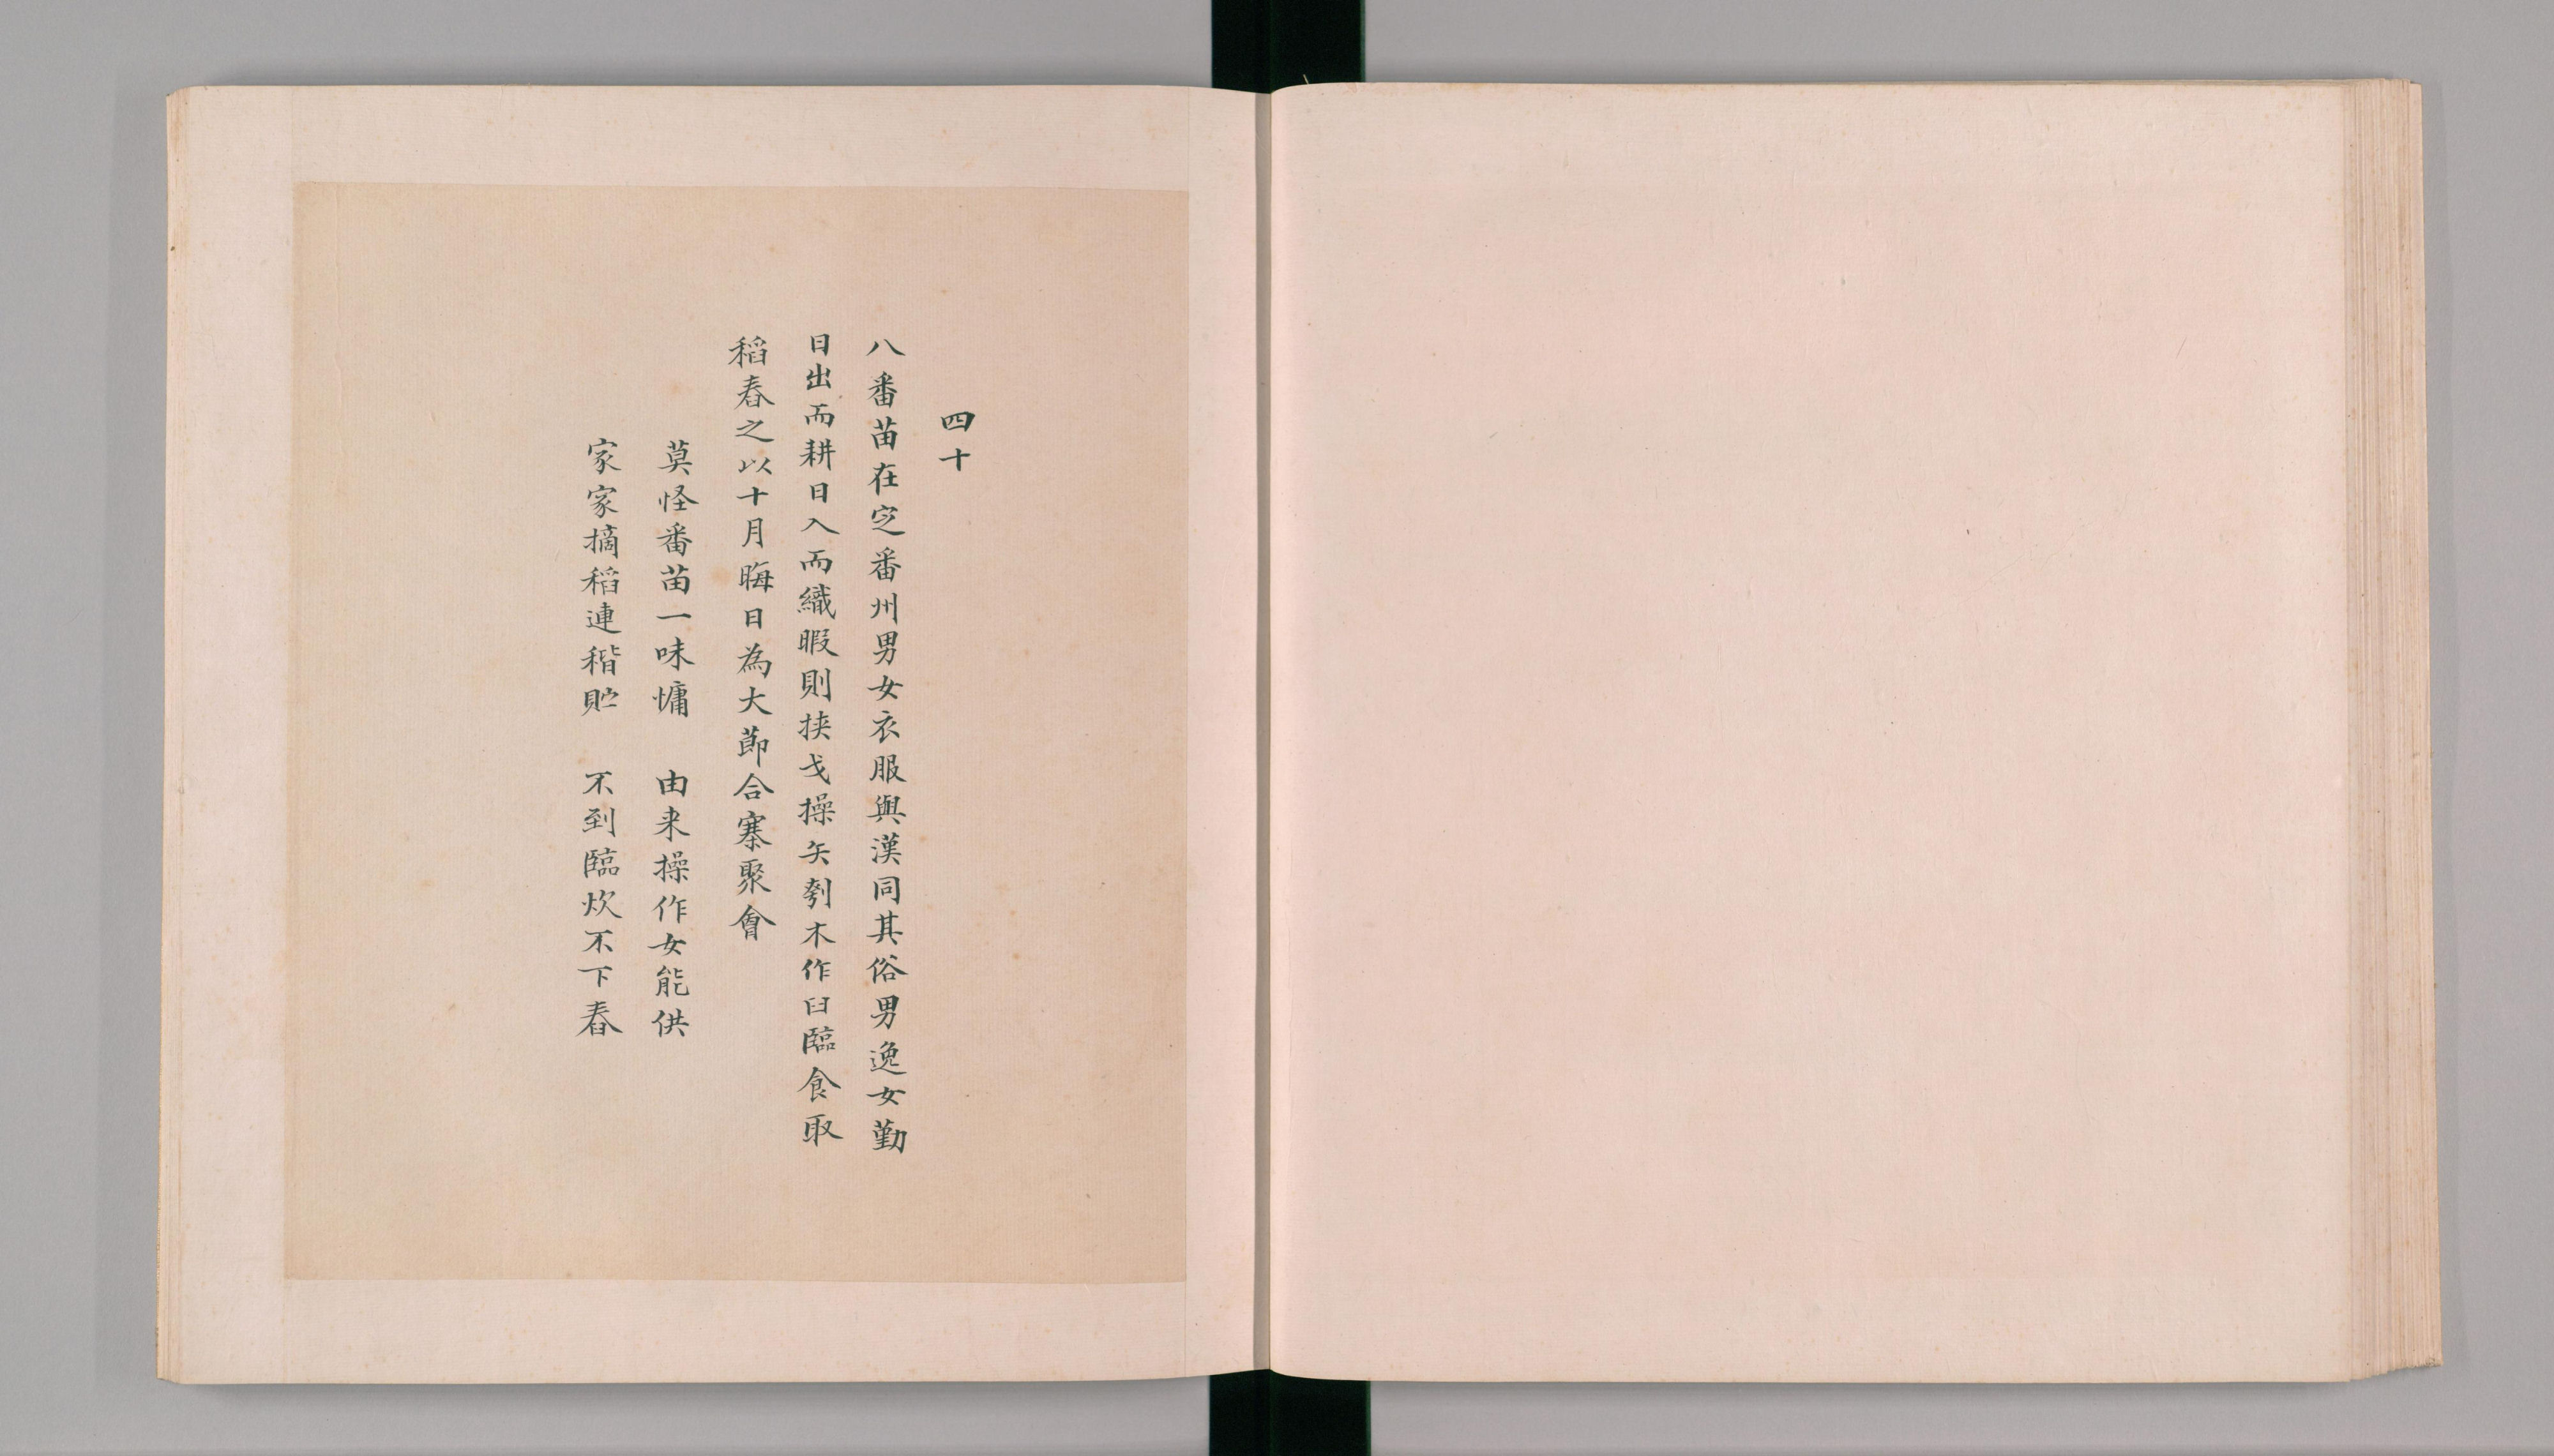 四十
八番苗在定番州男女衣服與漢同其俗男逸女勤
日出而耕日入而織暇則挟戈操矢刳木作臼臨食取
稻舂之以十月晦日為大節合寨聚會
莫怪番苗一味慵　由来操作女能供
家家摘稻連稭貯　不到臨炊不下舂